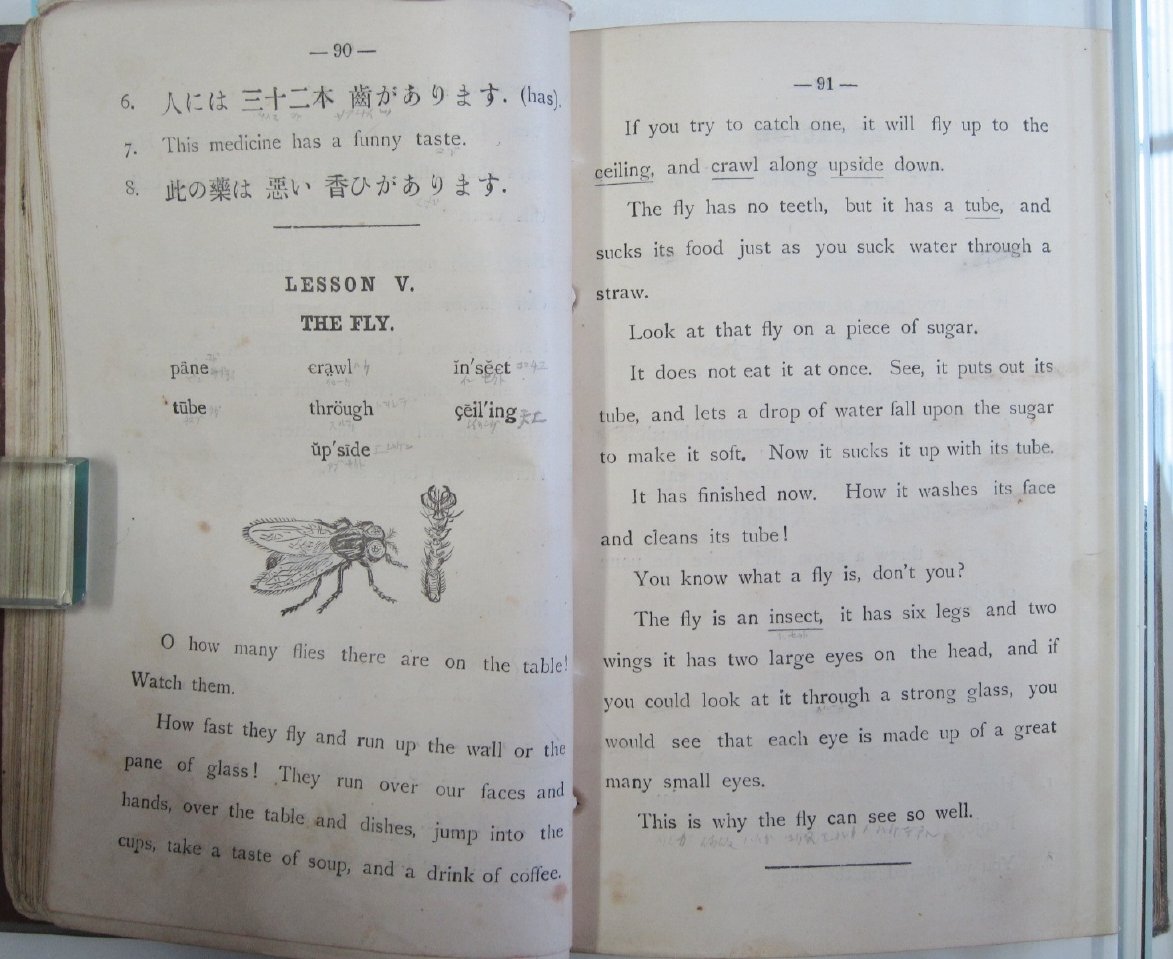 —90—
6. 人には 三十二本 齒があります. (has).
7. This medicine has a funny taste.
8. 此の藥は 惡い 香ひがあります.
LESSON V.
THE FLY.
pāne crạwl ĭn′sĕct
tūbe thrö̤ugh çēil′ing
ŭp′sīde
O how many flies there are on the table!
Watch them.
How fast they fly and run up the wall or the
pane of glass! They run over our faces and
hands, over the table and dishes, jump into the
cups, take a taste of soup, and a drink of coffee.
—91—
If you try to catch one, it will fly up to the
ceiling, and crawl along upside down.
The fly has no teeth, but it has a tube, and
sucks its food just as you suck water through a
straw.
Look at that fly on a piece of sugar.
It does not eat it at once. See, it puts out its
tube, and lets a drop of water fall upon the sugar
to make it soft. Now it sucks it up with its tube.
It has finished now. How it washes its face
and cleans its tube!
You know what a fly is, don't you?
The fly is an insect, it has six legs and two
wings it has two large eyes on the head, and if
you could look at it through a strong glass, you
would see that each eye is made up of a great
many small eyes.
This is why the fly can see so well.